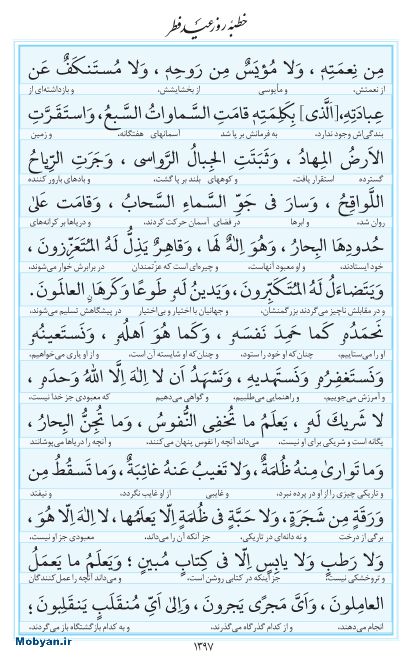 خطبهٔ روز عید فطر
مِن نِعمَتِهِ ، وَلا مُؤیَسٌ مِن رَوحِهِ ، وَلا مُستَنکَفٌ عَن
از نعمتش، و مأیوسی از بخشایشش، و بازداشته‌ای از
عِبادَتِهِ،[اَلَّذی] بِکَلِمَتِهِ قامَتِ السَّماواتُ السَّبعُ، وَاستَقَرَّتِ
بندگی‌اش وجود ندارد. به فرمانش بر پا شد آسمانهای هفتگانه، و زمین
الاَرضُ المِهادُ ، وَثَبَتَتِ الجِبالُ الرَّواسی ، وَجَرَتِ الرِّیاحُ
گسترده استقرار یافت، و کوههای بلند بر پا گشت، و بادهای بارور کننده
اللَّواقِحُ ، وَسارَ فی جَوِّ السَّماءِ السَّحابُ ، وَقامَت عَلیٰ
روان شد، و ابرها در فضای آسمان حرکت کردند، و دریاها بر کرانه‌های
حُدودِهَا البِحارُ ، وَهُوَ اِلٰهٌ لَها ، وَقاهِرٌ یَذِلُّ لَهُ المُتَعَزِّزونَ ،
خود ایستادند، و او معبود آنهاست، و چیره‌ای است که عزتمندان در برابرش خوار می‌شوند،
وَیَتَضاءَلُ لَهُ المُتَکَبِّرونَ، وَیَدینُ لَهُ طَوعًا وَکَرهًا العالَمونَ.
و در مقابلش ناچیز می‌گردند بزرگمنشان، و جهانیان با اختیار و بی‌اختیار در پیشگاهش تسلیم می‌شوند.
نَحمَدُهُ کَما حَمِدَ نَفسَهُ ، وَکَما هُوَ اَهلُهُ ، وَنَستَعینُهُ
او را می‌ستاییم، چنان که او خود را ستود، و چنان که او شایسته آن است، و از او یاری می‌خواهیم،
وَنَستَغفِرُهُ وَنَستَهدیهِ، وَنَشهَدُ اَن لا اِلٰهَ اِلَّا اللهُ وَحدَهُ ،
و آمرزش می‌جوییم، و راهنمایی می‌طلبیم، و گواهی می‌دهیم که معبودی جز خدا نیست،
لا شَریكَ لَهُ ، یَعلَمُ ما تُخفِی النُّفوسُ ، وَما تُجِنُّ البِحارُ،
یگانه است و شریکی برای او نیست. می‌داند آنچه را نفوس پنهان می‌کنند. و آنچه را دریاها می‌پوشانند
وَما تَواریٰ مِنهُ ظُلمَةٌ، وَلا تَغیبُ عَنهُ غائِبَةٌ، وَما تَسقُطُ مِن
و تاریکی چیزی را از او در پرده نبرد، و غایبی از او غایب نگردد، و نیفتد
وَرَقَةٍ مِن شَجَرَةٍ، وَلا حَبَّةٍ فی ظُلمَةٍ اِلّا یَعلَمُها، لا اِلٰهَ اِلّا هُوَ ،
برگی از درخت و نه دانه‌ای در تاریکی، جز آنکه آن را می‌داند، معبودی جز او نیست،
وَلا رَطبٍ وَلا یابِسٍ اِلّا فی کِتابٍ مُبینٍ ؛ وَیَعلَمُ ما یَعمَلُ
و تر و خشکی نیست جز اینکه در کتابی روشن است. و می‌داند آنچه را عمل کنندگان
العامِلونَ، وَاَیَّ مَجریً یَجرونَ، وَاِلیٰ اَیِّ مُنقَلَبٍ یَنقَلِبونَ ؛
انجام می‌دهند، و از کدام گذرگاه می‌گذرند، و به کدام بازگشتگاه باز می‌گردند.
۱۳۹۷
Mobyan.ir